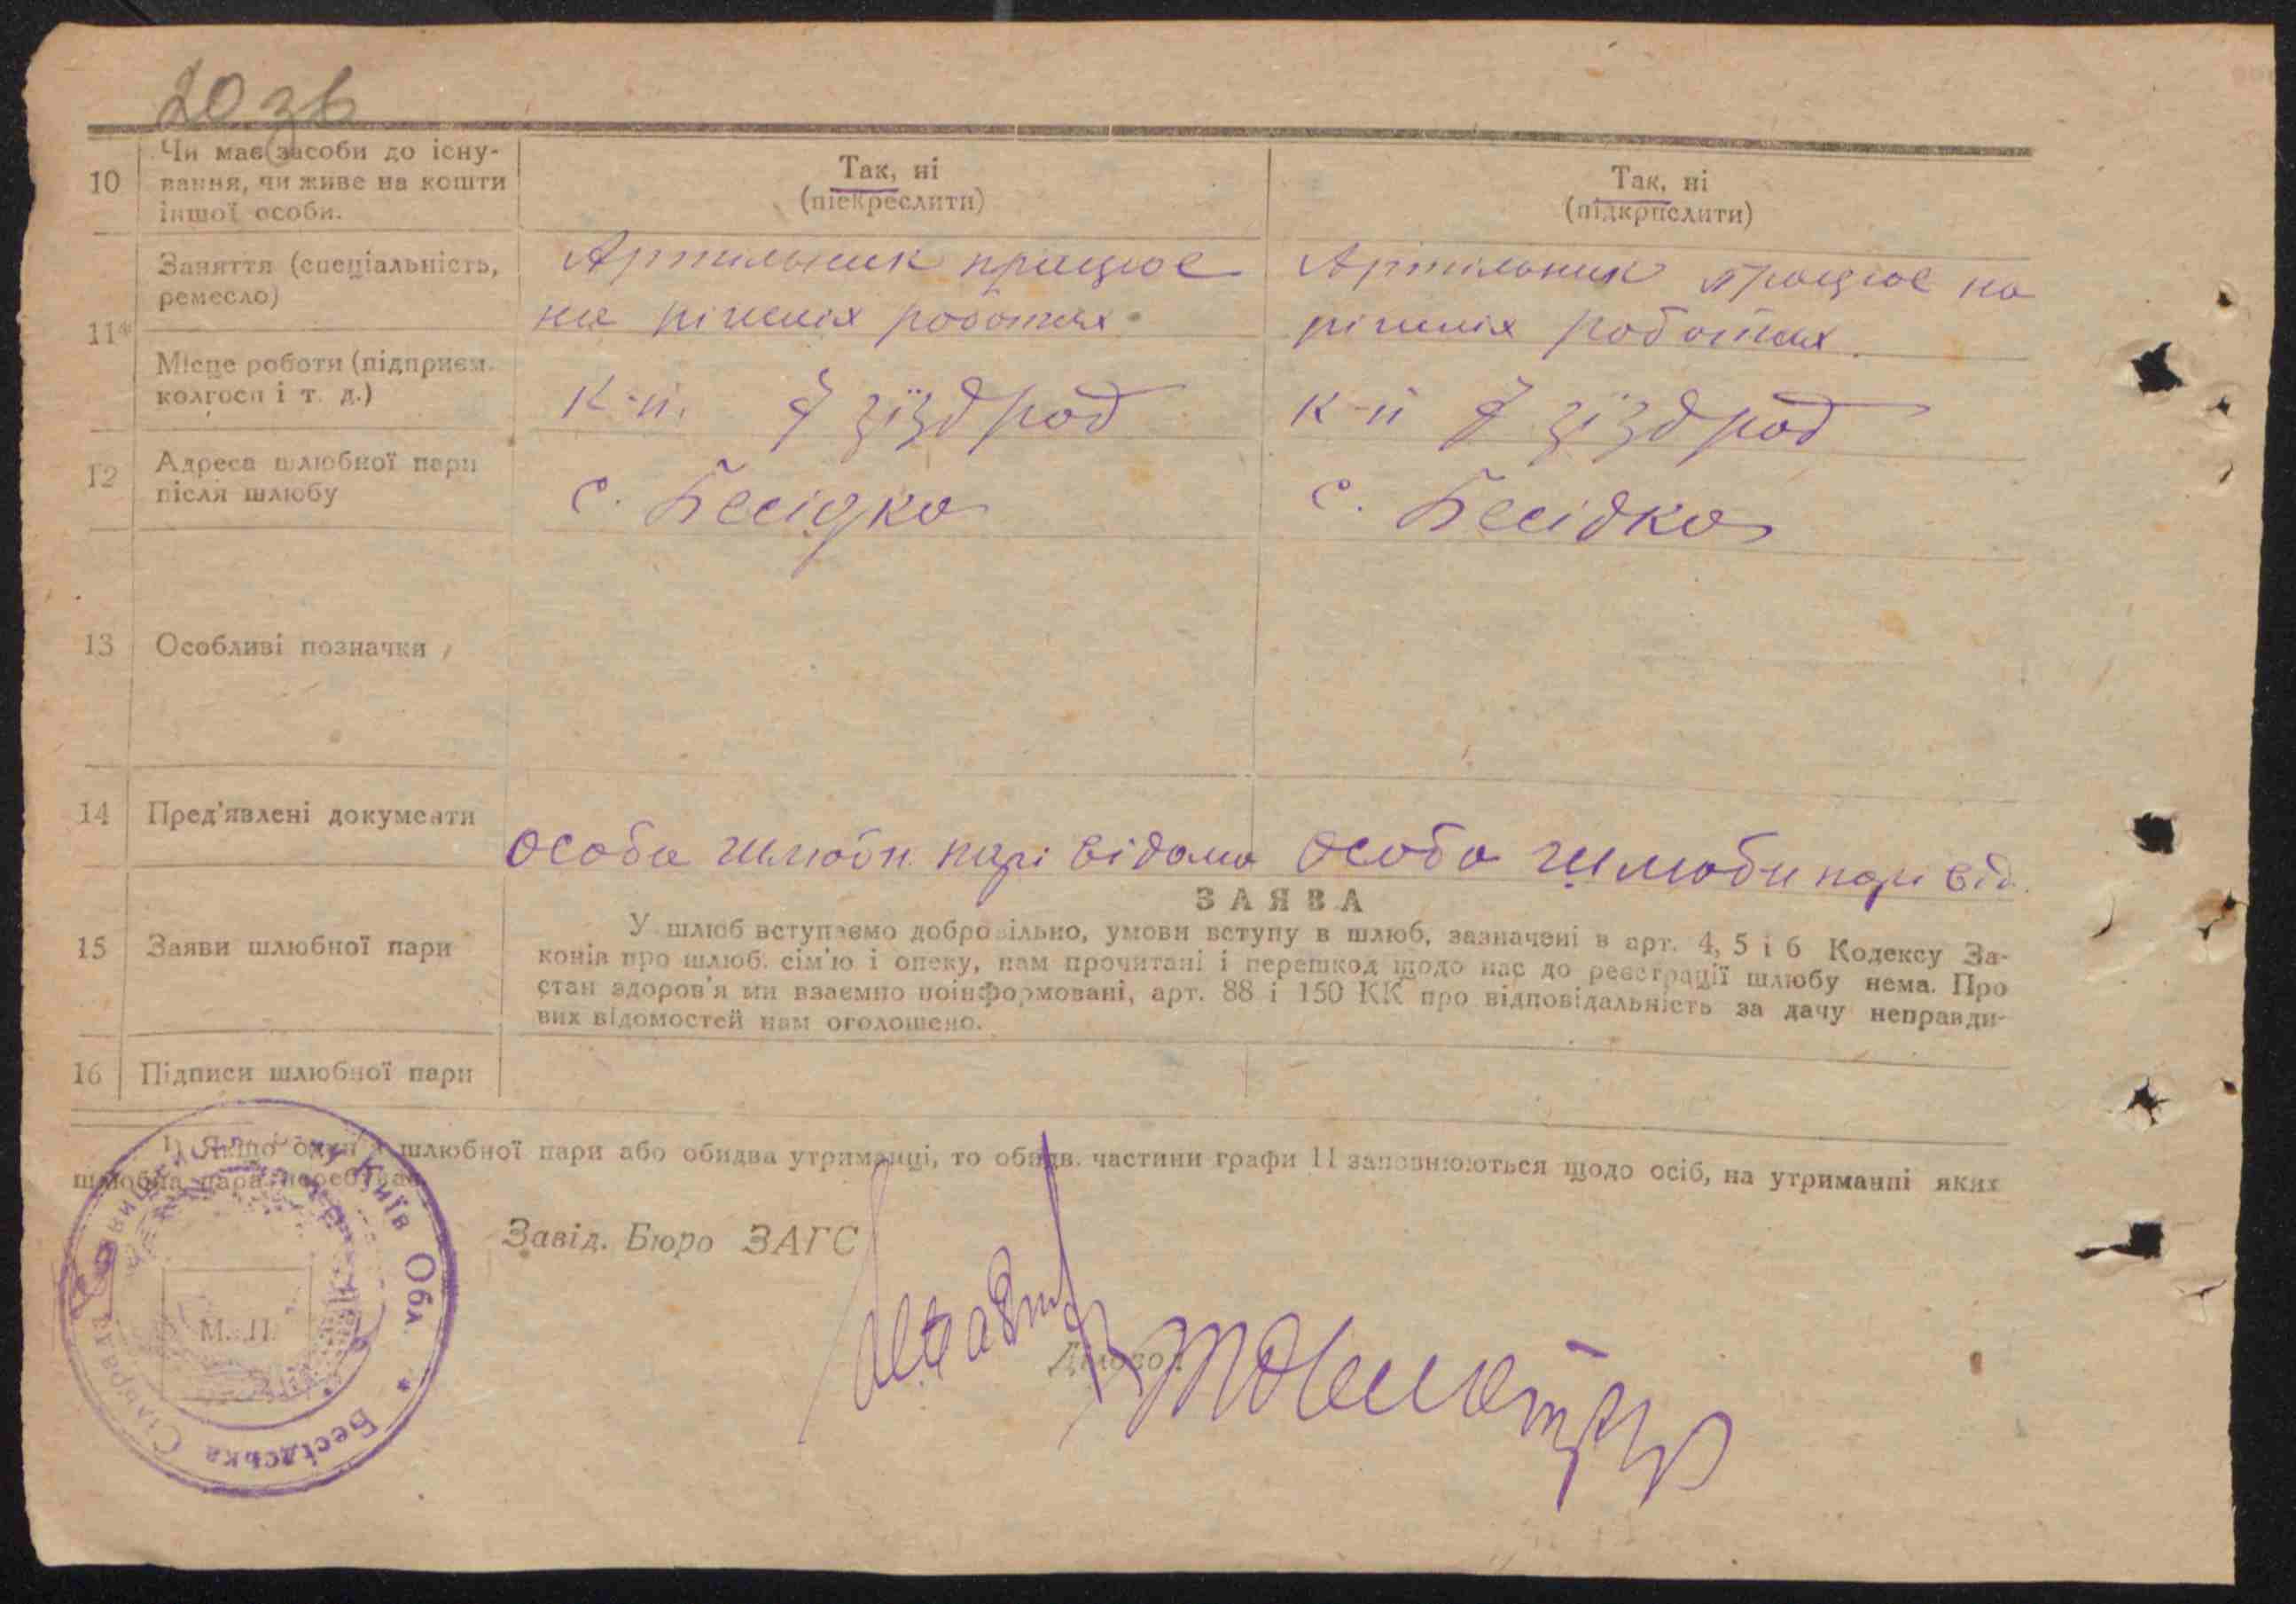 20 зв
10 Чи має засоби до існу-
вання, чи живе на кошти
іншої особи.
Так, ні
(піекреслити)
Так, ні
(підкрпслити)
11а
Заняття (спеціальність,
ремесло)
Артильник працює
на різних роботах
Артільник працює на
різних роботах.
Місце роботи (підприєм.
колгосп і т. д.)
к-п. 7 зїзд рад
к-п 7 зїзд рад
12 Адреса шлюбної пари
після шлюбу
с. Бесідка
с. Бесідка
13 Особливі позначки
14 Пред'явлені документи
особа шлюбн. парі відома
особа шлюбн парі від.
15 Заяви шлюбної пари
ЗАЯВА
У шлюб вступаємо добровільно, умови вступу в шлюб, зазначені в арт. 4, 5 і 6 Кодексу За-
конів про шлюб. сім'ю і опеку, нам прочитані і перешкод щодо нас до реєстрації шлюбу нема. Про
стан здоров'я ми взаємно поінформовані, арт. 88 і 150 КК про відповідальність за дачу неправди-
вих відомостей нам оголошено.
16 Підписи шлюбної пари
1) Якщо один з шлюбної пари або обидва утриманці, то обидв. частини графи 11 заповнюються щодо осіб, на утриманні яких
шлюбна пара перебуває
Завід. Бюро ЗАГС
Діловод
М. П.
Київ Обл. * Бесідська Сільрада